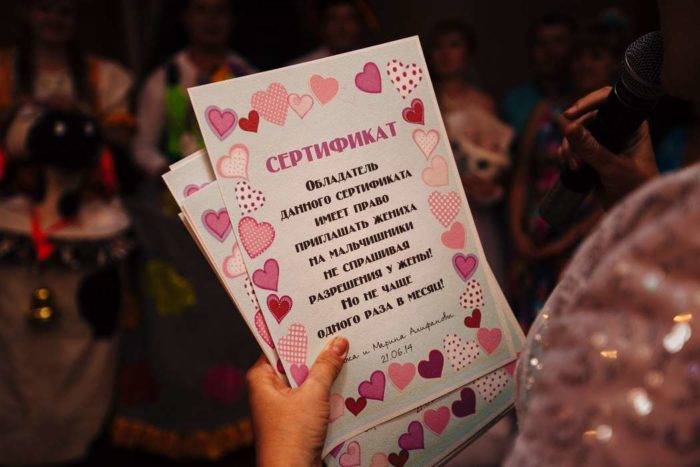 СЕРТИФИКАТ
Обладатель
данного сертификата
имеет право
приглашать жениха
на мальчишники
не спрашивая
разрешения у жены!
Но не чаще
одного раза в месяц!
и Марина Алифановы
21.06.14